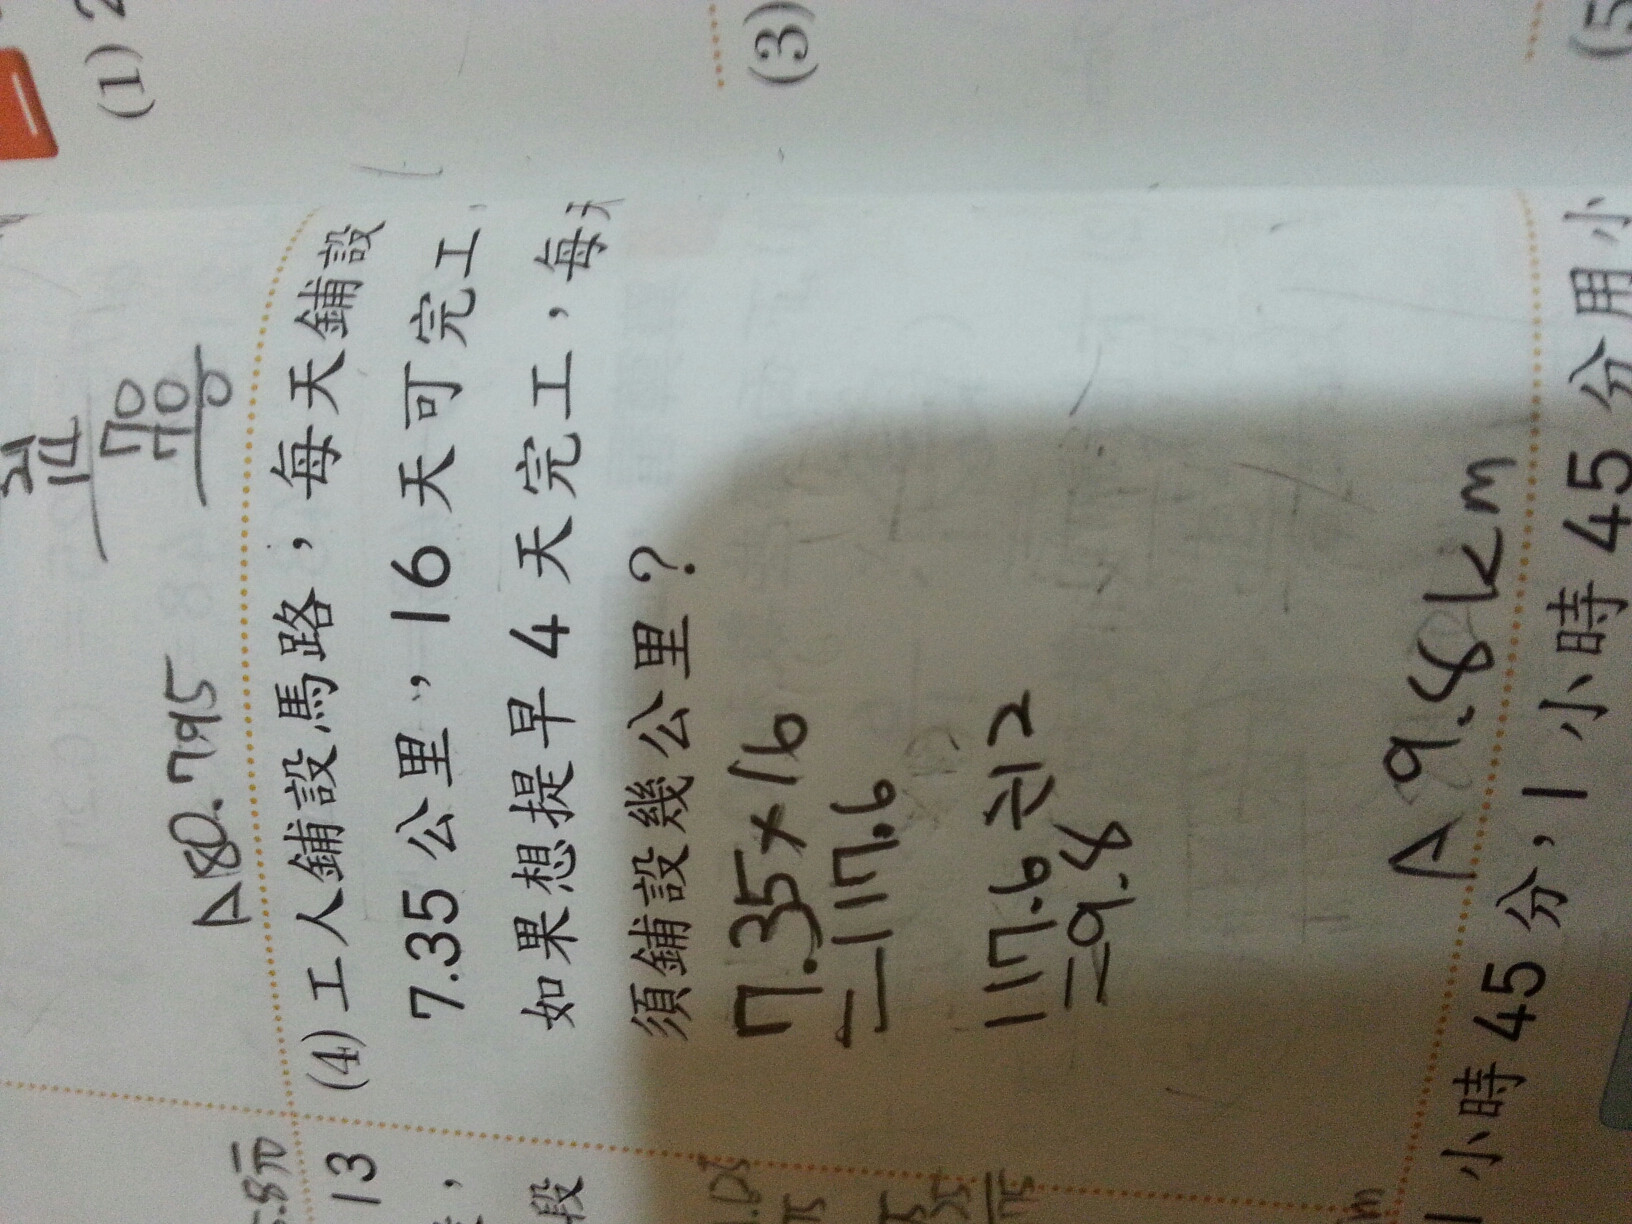 (1) 2
(3)
(5
70
70
0
A 80.795
(4) 工人鋪設馬路，每天鋪設
7.35 公里，16 天可完工，
如果想提早 4 天完工，每天
須鋪設幾公里？
7.35×16
=117.6
117.6÷12
=9.8
A 9.8km
13
段
1 小時 45 分，1 小時 45 分用小